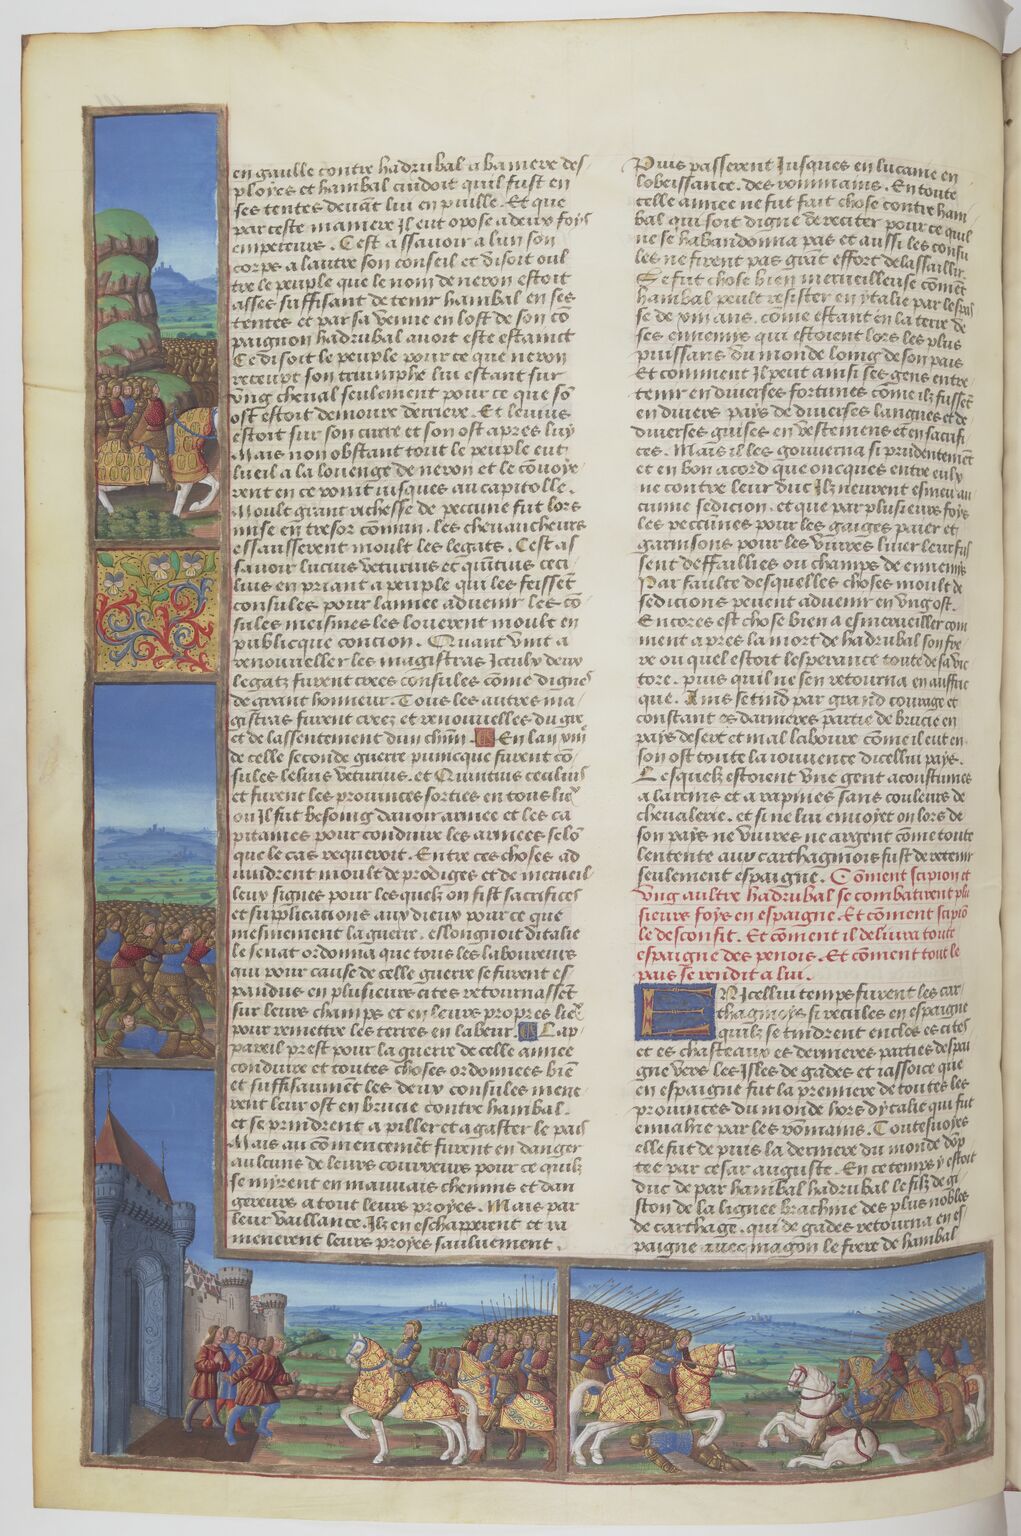 en gaulle contre hadrubal a baniere des
ployes et hanibal cuidoit quil fust en
ses tentes devant lui en puille. Et que
par ceste maniere Il eut opose a deux foys
empereurs. Cest assavoir a lun son
corps a lautre son conseil et disoit oul
tre le peuple que le nom de neron estoit
asses suffisant de tenir hanibal en ses
tentes et par sa venue en lost de son cō
paignon hadrubal avoit este estainct
Ce disoit le peuple pour ce que neron
receupt son triumphe lui estant sur
ung cheval seulement pour ce que sō
ost estoit demoure derriere. Et livius
estoit sur son curre et son ost apres luy
Mais non obstant tout le peuple eut
lueil a la louenge de neron et le cōvoye
rent en ce point iusques au capitolle.
Moult grant richesse de peccune fut lors
mise en tresor cōmun. les chevaucheurs
essausserent moult les legats. Cest as
savoir lucius veturius et quintus ceci
lius en priant a peuple qui les feissēt
consules pour lannee advenir les cō
sules meismes les louerent moult en
publicque concion. Quant vint a
renouveller les magistras Iceulx deux
legatz furent crees consules cōme dignes
de grant honneur. Tous les autres ma
gistras furent creez et renouvelles du gre
et de lassentement dun chūn. En lan xiiiᵉ
de celle seconde guerre punicque furent cō
sules lelius veturius. et Quintus cecilius
et furent les provinces sorties en tous lieˣ
ou Il fut besoing davoir armee et les ca
pitaines pour conduire les armees selō
que le cas requeroit. Entre ces choses ad
vindrent moult de prodiges et de merveil
leux signes pour les quelz on fist sacrifices
et suplicacions aux dieux pour ce que
mesmement la guerre. eslongnoit ditalie
le senat ordonna que tous les laboureurs
qui pour cause de celle guerre se furent es
pandus en plusieurs cites retournassēt
sur leurs champs et en leurs propres lieˣ
pour remettre les terres en labeur. Lap
pareil prest pour la guerre de celle annee
conduire et toutes choses ordonnees biē
et suffisaumēt les deux consules mene
rent leur ost en brucie contre hanibal.
et se prindrent a piller et a gaster le pais
Mais au cōmencemēt furent en danger
aulcuns de leurs courreurs pour ce quilz
se myrent en mauvais chemins et dan
gereux a tout leurs proyes. Mais par
leur vaillance. Ilz en eschapperent et ra
menerent leurs proyes saulvement.
Puis passerent Jusques en lucanie en
lobeissance. des rommains. En toute
celle annee ne fut fait chose contre hani
bal qui soit digne de reciter pour ce quil
ne se habandonna pas et aussi les consu
les ne firent pas grāt effort de lassaillir.
Se fut chose bien merveilleuse cōmēt
hanibal peult resister en ytalie par lespas
se de xiiii ans. cōme estant en la terre de
ses ennemys qui estoient lors les plus
puissans du monde loing de son pais
Et comment Il peut ainsi ses gens entre
tenir en diverses fortunes cōme ilz fussēt
en divers pays de diverses langues et de
diverses guises en vestemens et en sacrifi
ces. Mais il les gouverna si prudentemēt
et en bon acord que oncques entre eulx
ne contre leur duc Ilz neurent esmeu au
cune sedicion. et que par plusieurs foys
les peccunes pour les gaiges paier et
garnisons pour les vivres livrer leur fus
sent deffaillies ou champs de ennemis
Par faulte desquelles choses moult de
sedicions pevent advenir en ung ost.
Encores est chose bien a esmerveiller com
ment apres la mort de hadrubal son fre
re ou quel estoit lesperance toute de sa vic
toire. puis quil ne sen retourna en auffric
que. Ains se tind par grand courage et
constant es darnieres partie de brucie en
pays desert et mal laboure cōme il eut en
son ost toute la iouvence dicellui pays.
Lesquelz estoient une gent acoustumes
a larcins et a rapines sans couleurs de
chevalerie. et si ne lui envoyet on lors de
son pays ne vivres ne argent cōme toute
lentente aux carthaginois fust de retenir
seulement espaigne. Cōment scipion et
ung aultre hadrubal se combatirent plu
sieurs foys en espaigne. Et cōment scipiō
le desconfit. Et cōment il delivra toute
espaigne des penois. Et cōment tout le
pais se rendit a lui.
EN icellui temps furent les car
thaginoys si recules en espaigne
quilz se tindrent enclos es cites
et es chasteaux es dernieres parties despai
gne vers les Isles de gades et iassoice que
en espaigne fut la premiere de toutes les
provinces du monde hors dytalie qui fut
envahie par les rōmains. Toutesvoyes
elle fut de puis la derniere du monde dōp
tee par cesar auguste. En ce temps y estoit
duc de par hanibal hadrubal le filz de gi
ston de la lignee brachine des plus nobles
de carthage. qui de gades retourna en es
paigne avec magon le frere de hanibal